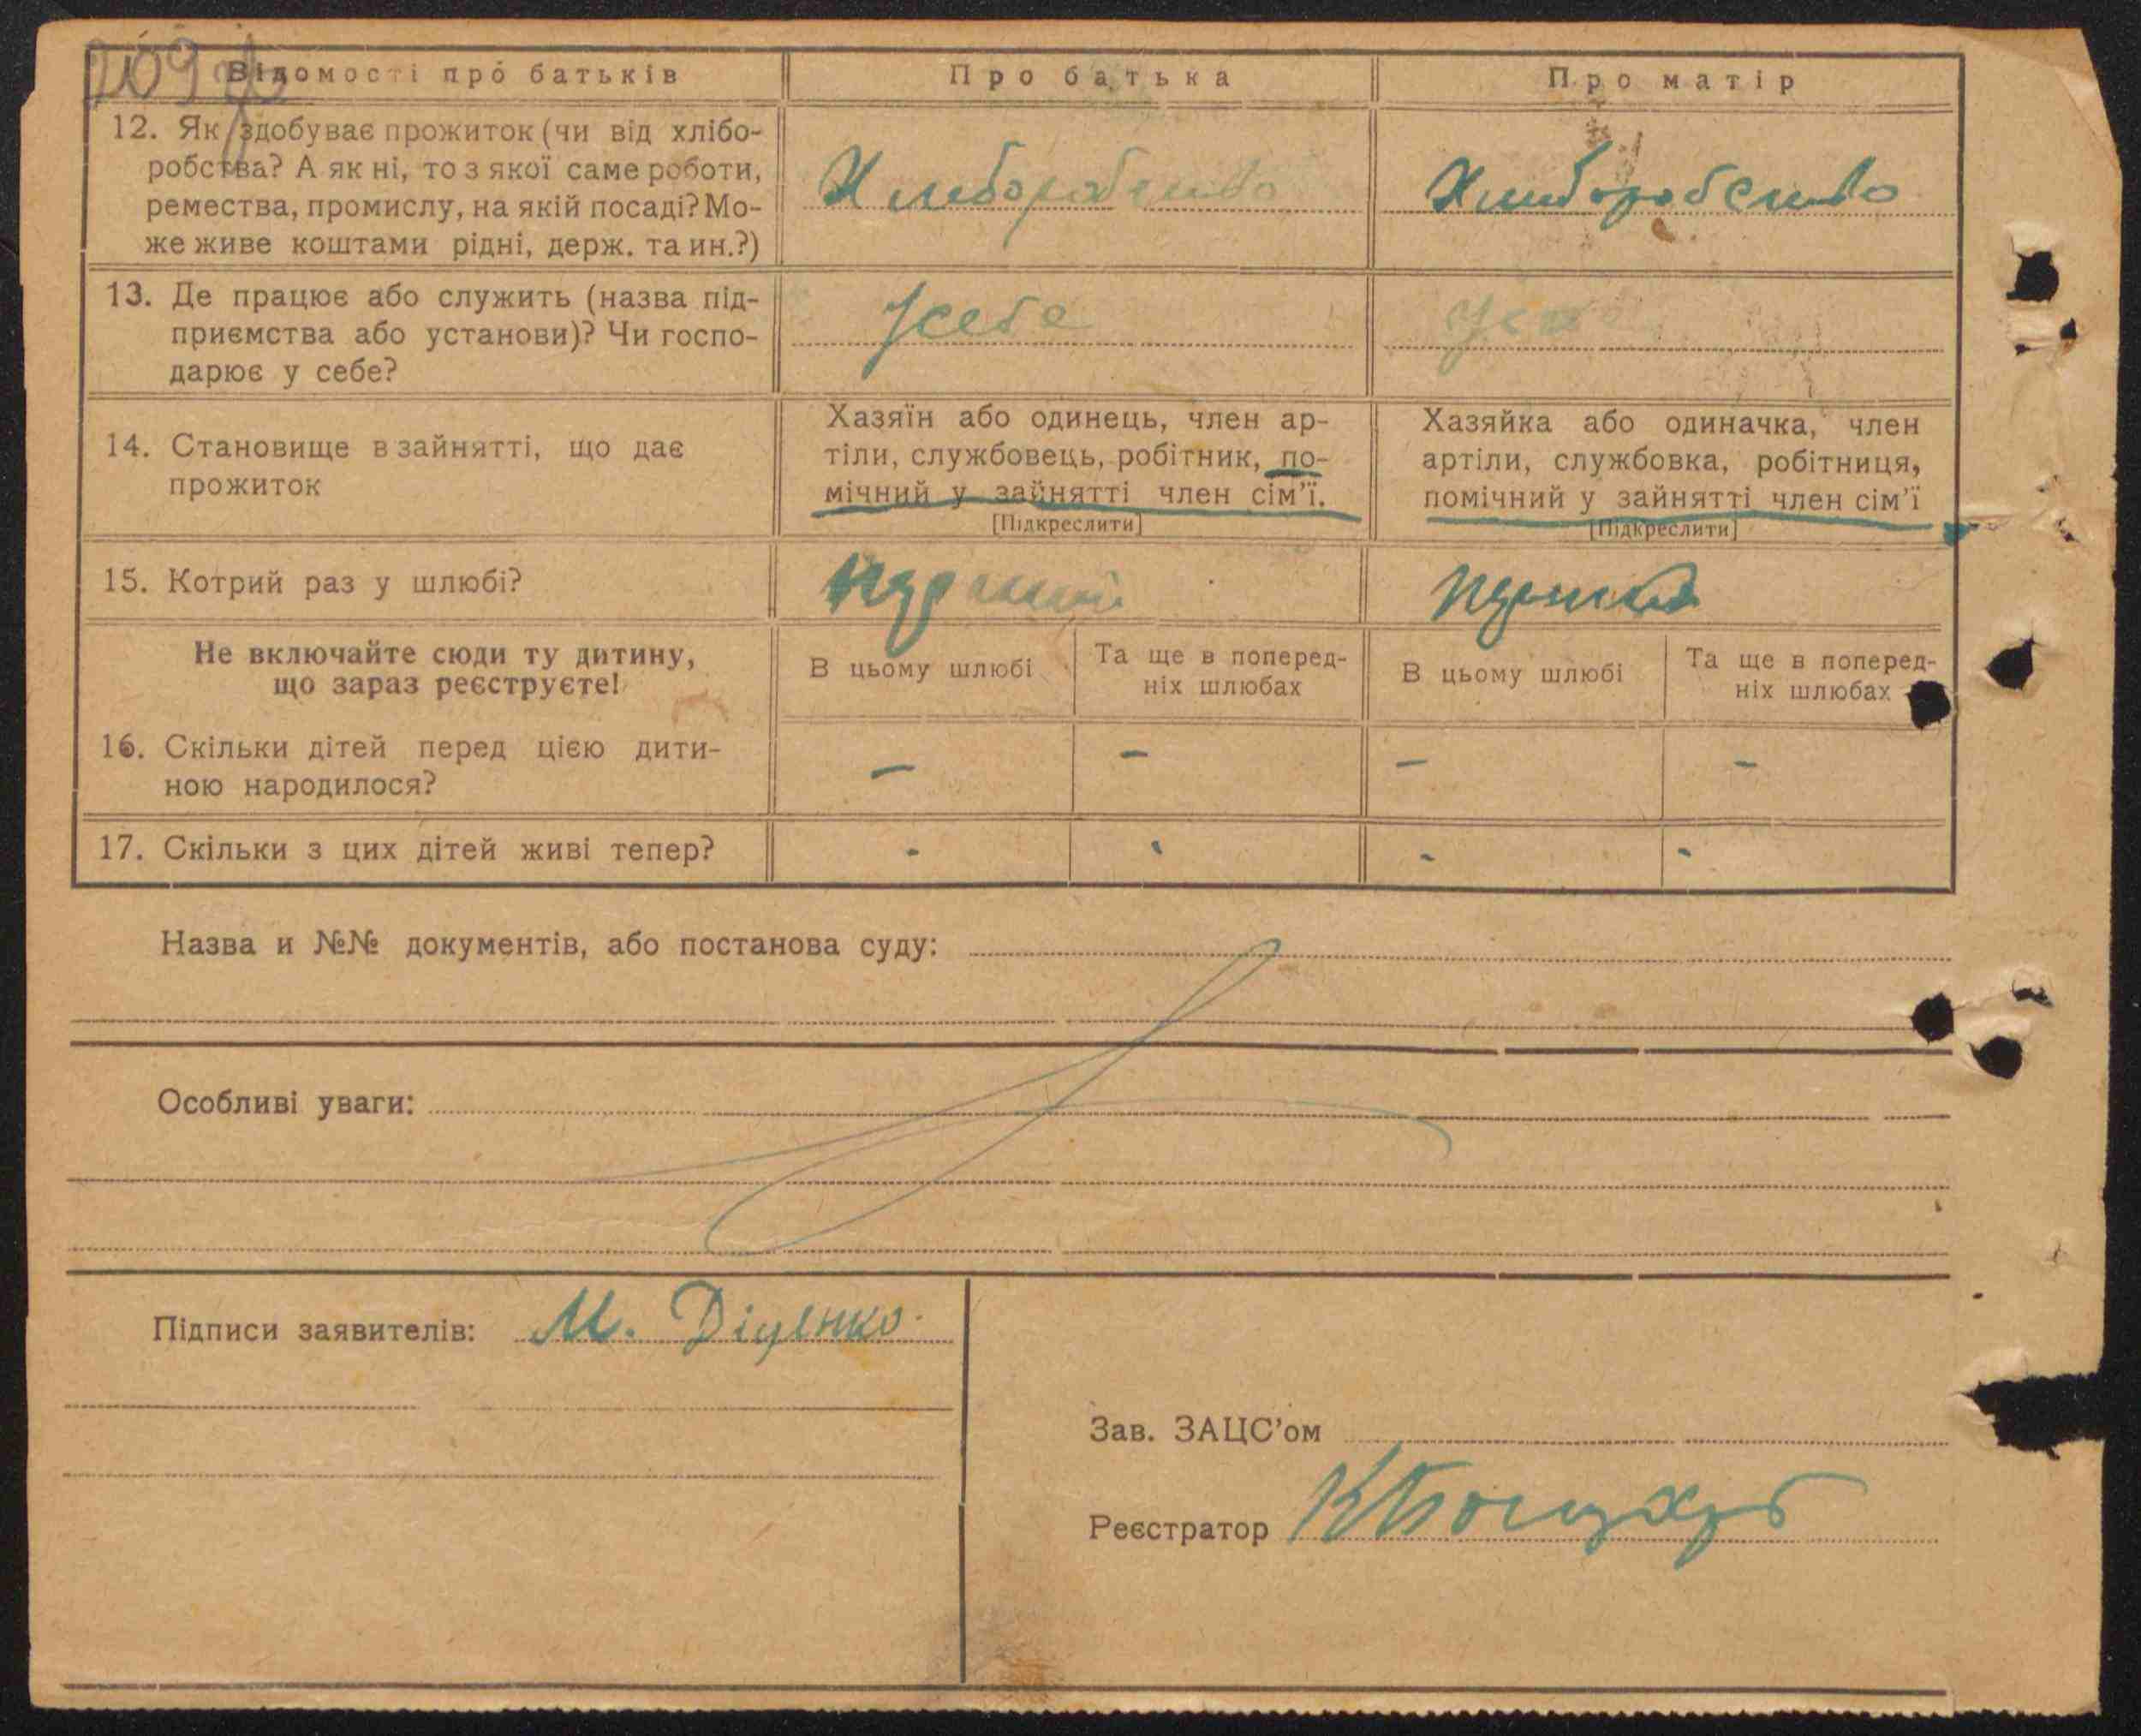 Відомості про батьків Про батька Про матір
12. Як здобуває прожиток (чи від хлібо-
робства? А як ні, то з якої саме роботи,
ремества, промислу, на якій посаді? Мо-
же живе коштами рідні, держ. та ин.?)
Хліборобство Хліборобство
13. Де працює або служить (назва під-
приємства або установи)? Чи госпо-
дарює у себе?
Усебе
14. Становище в зайнятті, що дає
прожиток
Хазяїн або одинець, член ар-
тіли, службовець, робітник, по-
мічний у зайнятті член сім'ї.
[Підкреслити]
Хазяйка або одиначка, член
артіли, службовка, робітниця,
помічний у зайнятті член сім'ї
[Підкреслити]
15. Котрий раз у шлюбі?
Не включайте сюди ту дитину,
що зараз реєструєте!
В цьому шлюбі
Та ще в поперед-
ніх шлюбах
В цьому шлюбі
Та ще в поперед-
ніх шлюбах
16. Скільки дітей перед цією дити-
ною народилося?
– – – –
17. Скільки з цих дітей живі тепер?
- - - -
Назва и №№ документів, або постанова суду:
Особливі уваги:
Підписи заявителів: М. Діденко
Зав. ЗАЦС'ом
Реєстратор